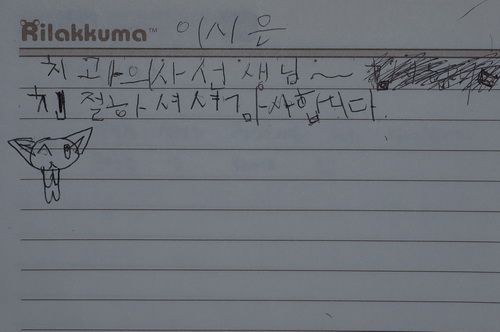 Rilakkuma™ 이시은
치과의사선생님~
친절하셔셔감사합니다.